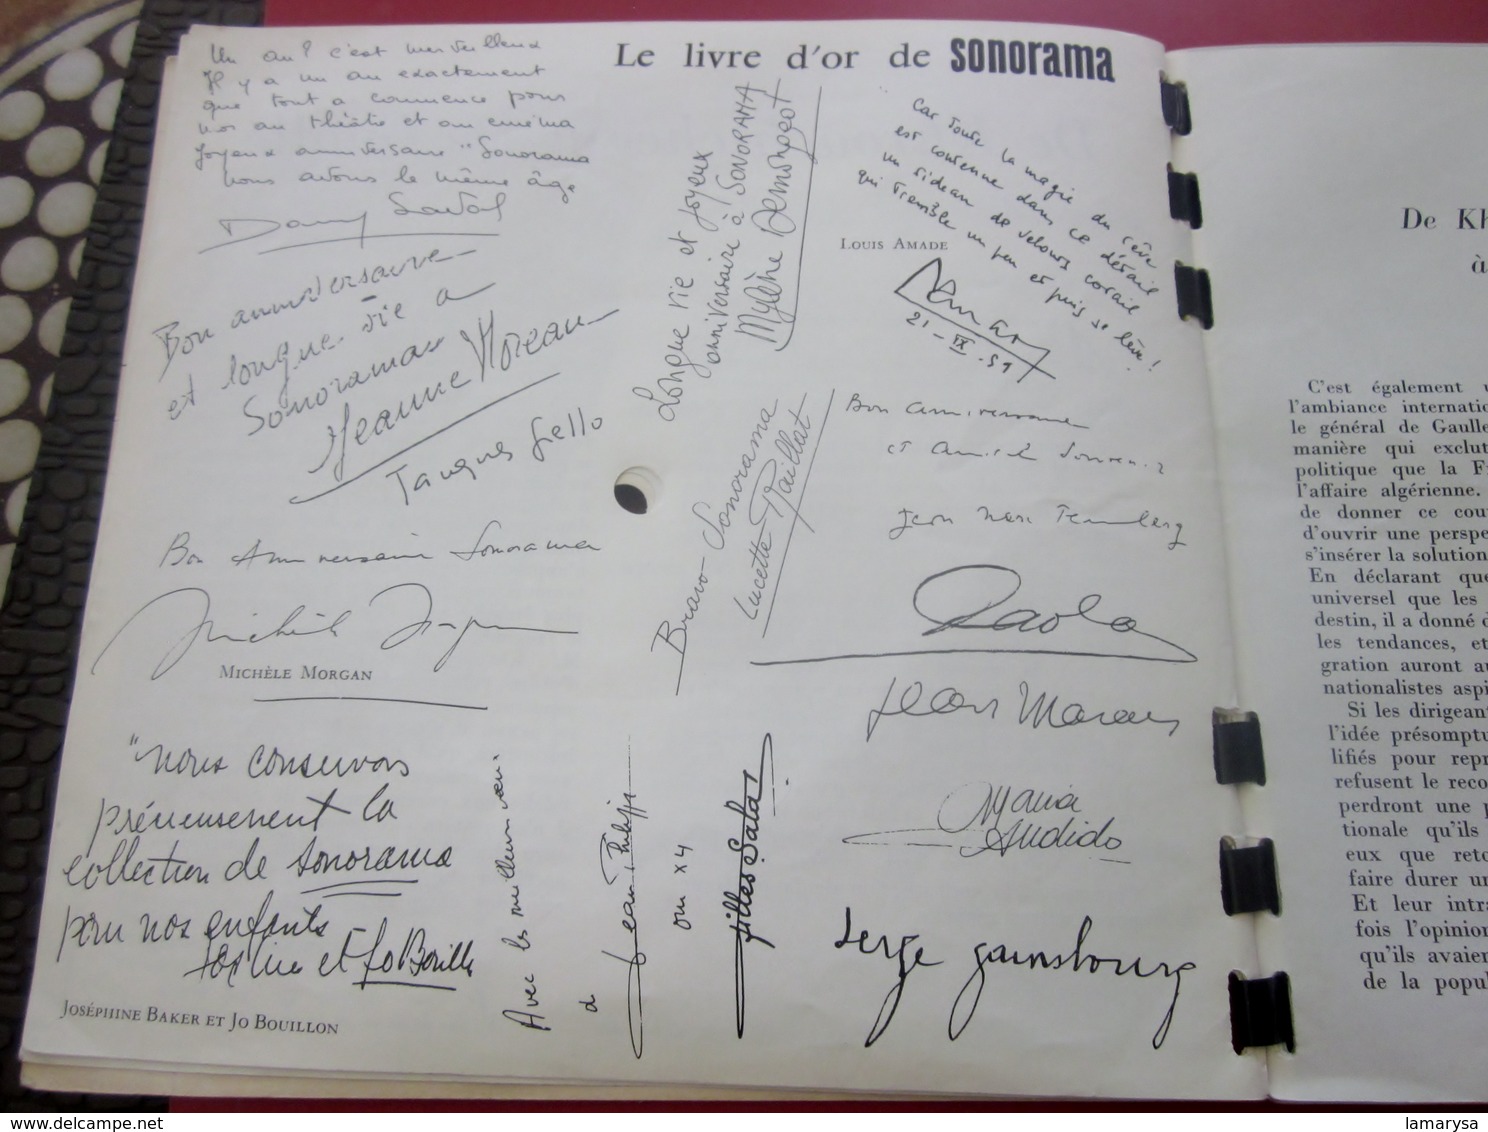 Le livre d'or de SONORAMA
Un an ? c'est merveilleux
Il y a un an exactement
que tout a commencé pour
moi au théâtre et au cinéma
Joyeux anniversaire "Sonorama
nous avons le même âge
Dany Saval
Bon anniversaire
et longue vie à
Sonorama
Jeanne Moreau
Jacques Sello
Bon Anniversaire Sonorama
Michèle Morgan
MICHÈLE MORGAN
"nous conservons
précieusement la
collection de Sonorama
pour nos enfants
et Jo Bouillon
JOSÉPHINE BAKER ET JO BOUILLON
Longue vie et joyeux
anniversaire à SONORAMA
Mylène Demongeot
Bravo Sonorama
Lucette Raillat
Avec les meilleurs vœux
d
Jean-Philippe
oui x 4
Gilles Sala
Car toute la magie du rêve
est contenue dans ce détail
un rideau de velours corail
qui tremble un peu et puis se lève !
LOUIS AMADE
21-IX-59
Bon anniversaire
et amical souvenir
Jean Marc Tennberg
Paola
Jean Marais
Maria
Andido
Serge Gainsbourg
De Kh
à
C'est également
l'ambiance internatio
le général de Gaulle
manière qui exclut
politique que la F
l'affaire algérienne.
de donner ce cou
d'ouvrir une perspe
s'insérer la solution
En déclarant que
universel que les
destin, il a donné d
les tendances, et
gration auront au
nationalistes aspi
Si les dirigeant
l'idée présomptu
lifiés pour repr
refusent le reco
perdront une p
tionale qu'ils
eux que reto
faire durer un
Et leur intra
fois l'opinion
qu'ils avaien
de la popul
delcampe.net
lamarysa